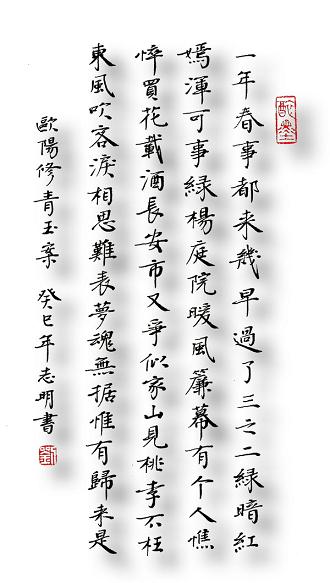 一年春事都来幾早過了三之二緑暗紅
嫣渾可事緑楊庭院暖風簾幕有个人憔
悴買花載酒長安市又爭似家山見桃李不枉
東風吹客淚相思難表夢魂無据惟有歸来是
歐陽修青玉案 癸巳年志明書